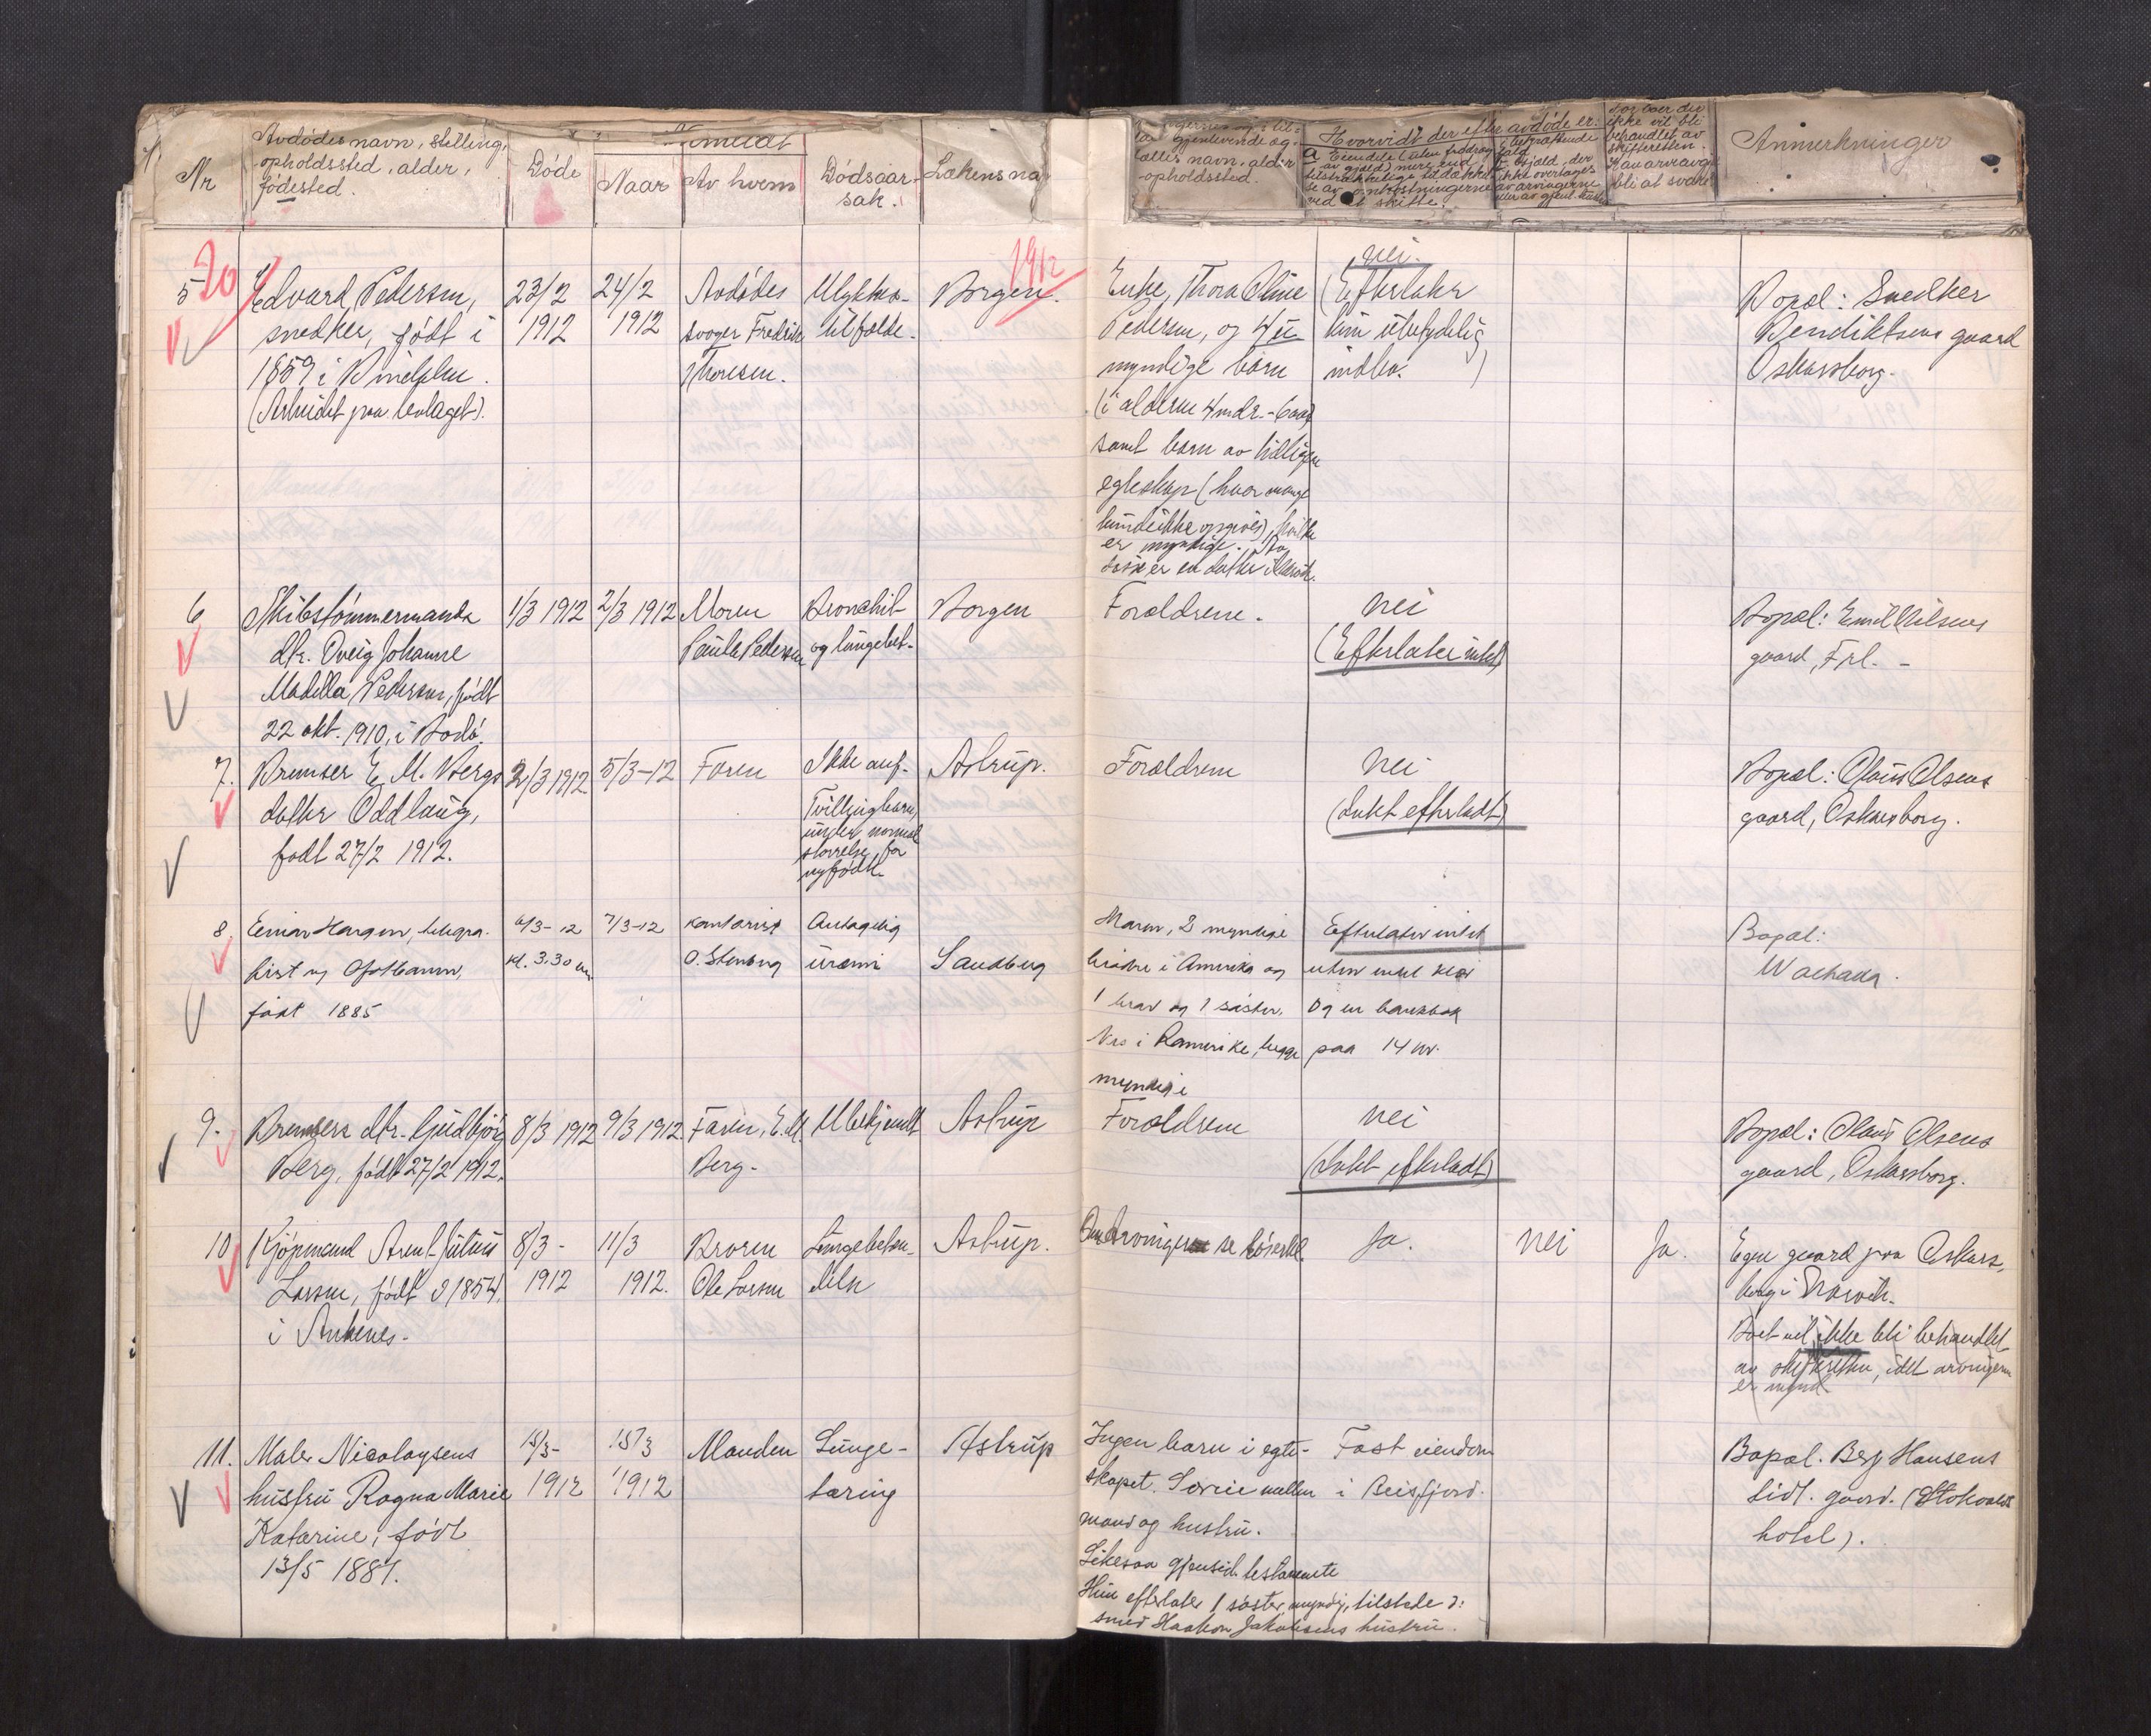 Nr
Avdödes navn, stilling,
opholdssted, alder,
födested.
Döde
Anmeldt
Naar
Av hvem
Dödsaar-
sak.
Lækens na
gjenlevende æg-
tefælles navn, alder
-opholdssted.
Hvorvidt der efter avdöde er:
ved et skifte.
ikke vil bli
behandlet av
skifteretten.
bli at svare
Anmerkninger
20
1912
5
Edvard Pedersen,
snedker, født i
1859 i Vinelplen.
(Arbeidet paa bolaget).
23/2
1912
24/2
1912
Avdødes
svoger Fredrik
Thoresen.
Ulykkes-
tilfælde.
Borgen.
Enke, Thora Oline
Pedersen, og 4 u-
myndige børn
(i alderen 4 mdr. - 6 aar)
samt børn av tidligere
egteskap (hvor mange
kunde ikke opgives), hvilke
er myndige.
nei.
(Efterlater
kun ubetydelig
indbo.)
Bopæl: Snedker
Bendiktsens gaard
Oskarsborg.
6
Skibstømmermands
dtr. Oveig Johanne
Madella Pedersen, født
22 okt. 1910, i Bodø.
1/3 1912
2/3 1912
Moren
Paula Pedersen
Bronchit
og lungebet.
Borgen
Forældrene.
nei
(Efterlater intet)
Bopæl: Emil Nilsens
gaard, Frl. -
7.
Bremser E. M. Bergs
datter Oddlaug,
født 27/2 1912.
2/3 1912
5/3-12
Faren
Ikke anf.
Tvillingbarn,
under normal
størrelse for
nyfødt.
Astrup.
Forældrene
nei
(Intet efterladt)
Bopæl: Olaus Olsens
gaard, Oskarsborg.
8.
Einar Haugen, telegra-
fist og Ofotbanen,
født 1885
6/3-12
kl. 3.30 em
7/3-12
Kontorist
O. Stenberg
Antagelig
uræmi
Sandberg
Moren, 2 myndige
brødre i Amerika og
1 bror og 1 søster,
Nes i Romerike, begge
myndige
Efterlater intet
uten endel klær
og en bankbok
paa 14 kr.
Bopæl:
9.
Bremsers dtr. Gudbjörg
Berg, født 27/2 1912.
8/3 1912
9/3 1912.
Faren, E. M.
Berg.
Ubekjendt
Astrup
Forældrene
nei
(Intet efterladt)
Bopæl: Olaus Olsens
gaard, Oskarsborg.
10
Kjøpmand Arent Julius
Larsen, født 1854,
i Ankenes.
8/3 -
1912
11/3
1912.
Broren
Ole Larsen
Lungebeten-
delse
Astrup.
Om Arvinger se løseskl.
Ja.
nei
Ja.
Egen gaard paa Oskars-
borg i Narvik.
Boet vil ikke bli behandlet
av skifteretten, idet arvingerne
er mynd.
11.
Maler Nicolaysens
hustru Ragna Marie
Katarine, født
13/5 1887.
15/3-
1912
15/3
1912
Manden
Lunge-
tæring
Astrup
Ingen barn i egte-
skapet. Særeie mellem
mand og hustru.
Likesaa gjensid. testamente
Hun efterlater 1 søster, myndig, tilstede :
smed Haakon Jakobsens hustru.
Fast eiendom
i Beisfjord.
Bopæl. Berg Hansens
tidl. gaard. (Stokvolds
hotel).